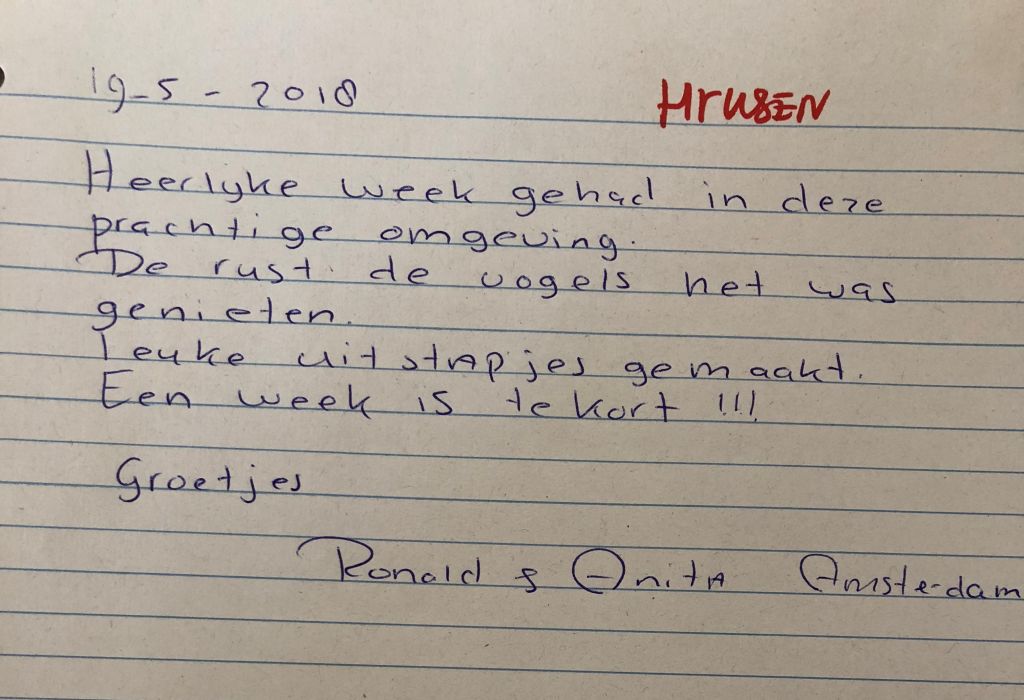 19-5-2018 HrusEN
Heerlyke week gehad in deze
prachtige omgeving.
De rust. de vogels het was
genieten.
Leuke uitstapjes gemaakt.
Een week is te kort !!!
Groetjes
Ronald & Anita Amsterdam